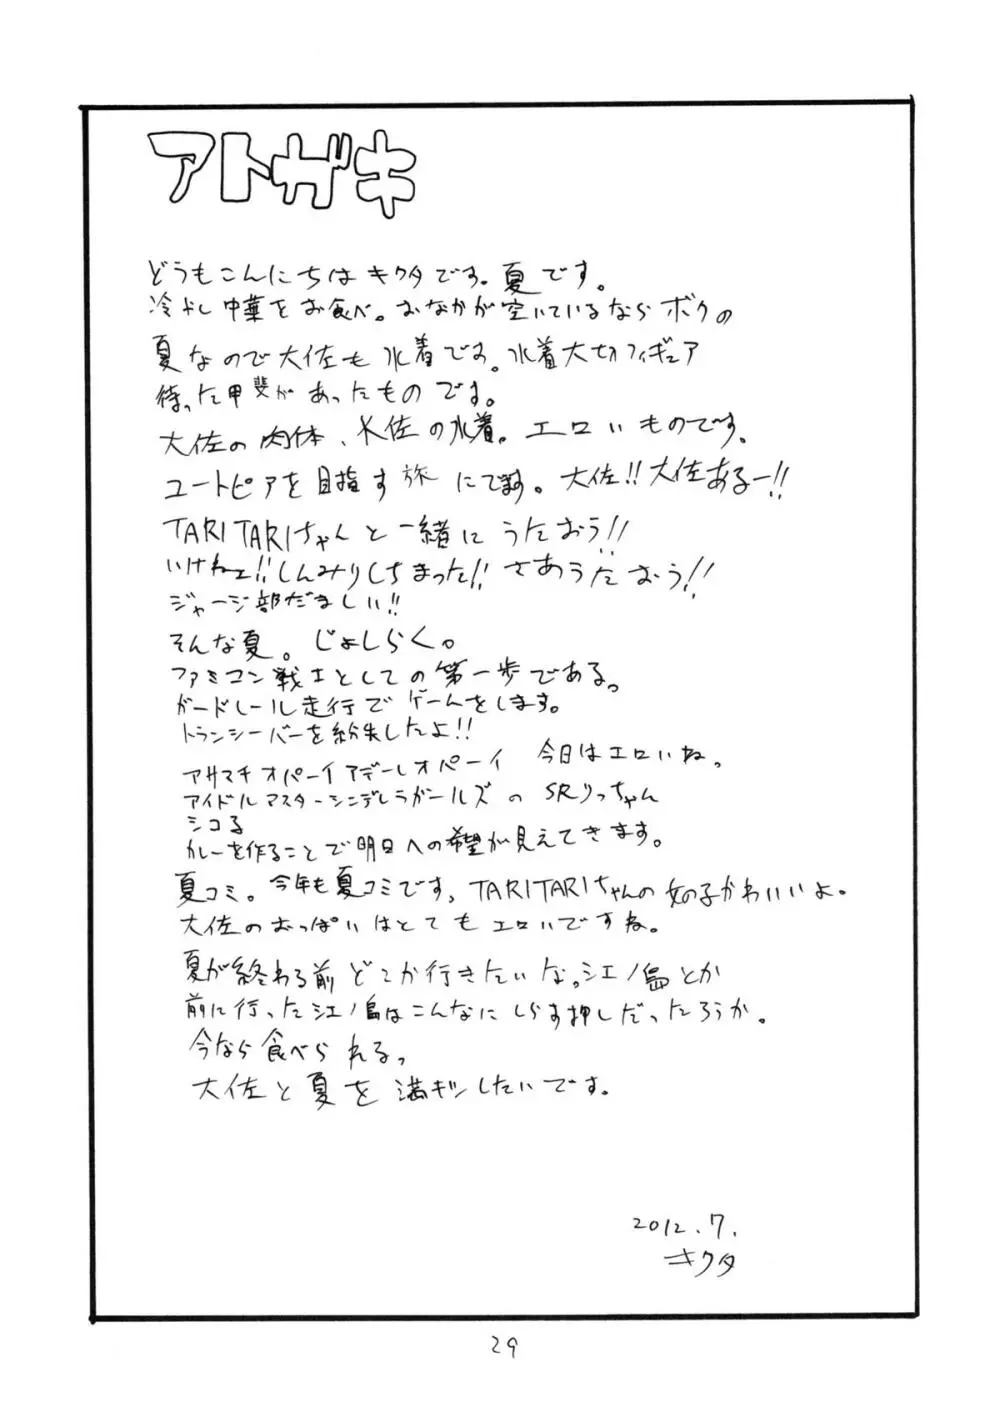 アトガキ
どうもこんにちは キクタです。夏です。
冷やし中華をお食べ。おなかが空いているならボクの
夏なので大佐も水着です。水着大切フィギュア
待った甲斐があったものです。
大佐の肉体、大佐の水着。エロいものです。
ユートピアを目指す旅にでます。大佐!!大佐あるー!!
TARITARIちゃんと一緒にうたおう!!
いけねェ!!しんみりしちまった!!さあうたおう!!
ジャージ部だましい!!
そんな夏。じょしらく。
ファミコン戦士としての第一歩である。
ガードレール走行でゲームをします。
トランシーバーを紛失したよ!!
アサマキオパーイアデーレオパーイ 今日はエロいね。
アイドルマスターシンデレラガールズの SRりっちゃん
シコる
カレーを作ることで明日への希望が見えてきます。
夏コミ。今年も夏コミです、TARITARIちゃんの女の子かわいいよ。
大佐のおっぱいはとてもエロいですね。
夏が終わる前どこか行きたいな。江ノ島とか
前に行った江ノ島はこんなにしらす押しだったろうか。
今なら食べられる。
大佐と夏を満キツしたいです。
2012.7.
キクタ
29